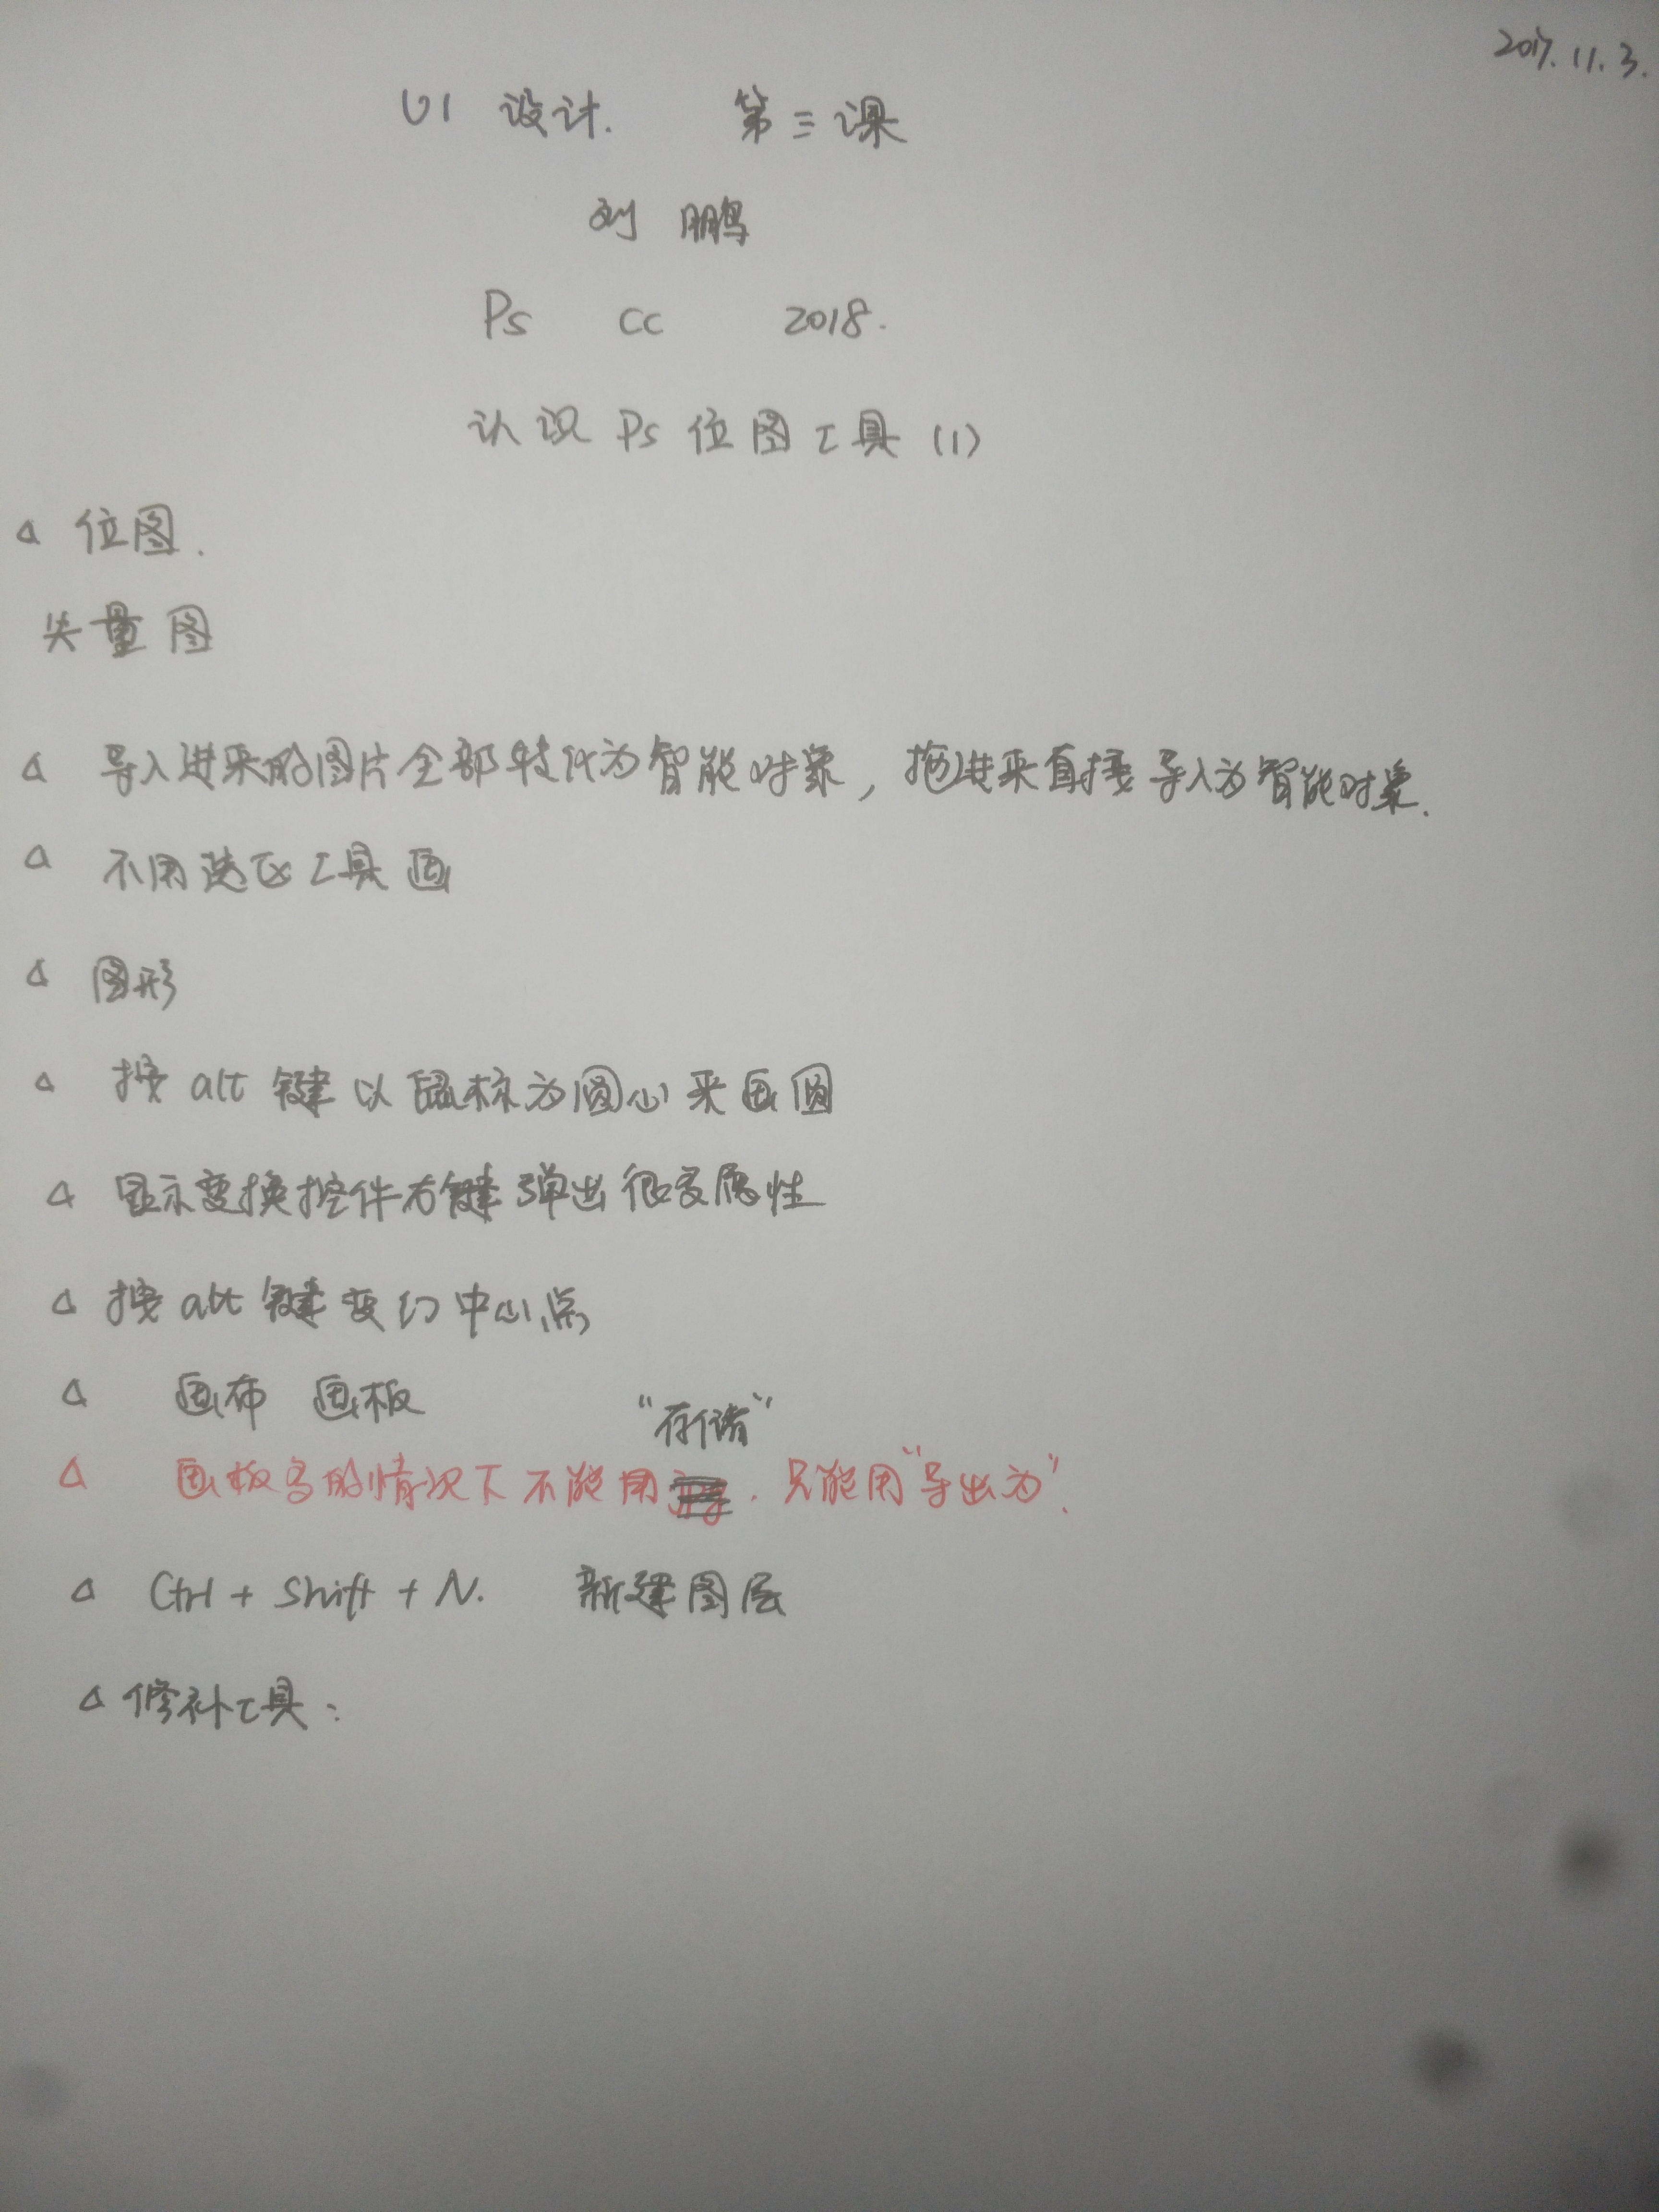 2017.11.3.
UI 设计. 第三课
刘 鹏
Ps CC 2018.
认识 Ps 位图工具 (1)
△ 位图.
矢量图
△ 导入进来的图片全部转化为智能对象，拖进来直接导入为智能对象.
△ 不用选区工具画
△ 图形
△ 按 alt 键以鼠标为圆心来画圆
△ 显示变换控件右键弹出很多属性
△ 按 alt 键变幻中心点
△ 画布 画板
“存储”
△ 画板多的情况下不能用 . 只能用“导出为”.
△ Ctrl + Shift + N. 新建图层
△ 修补工具：